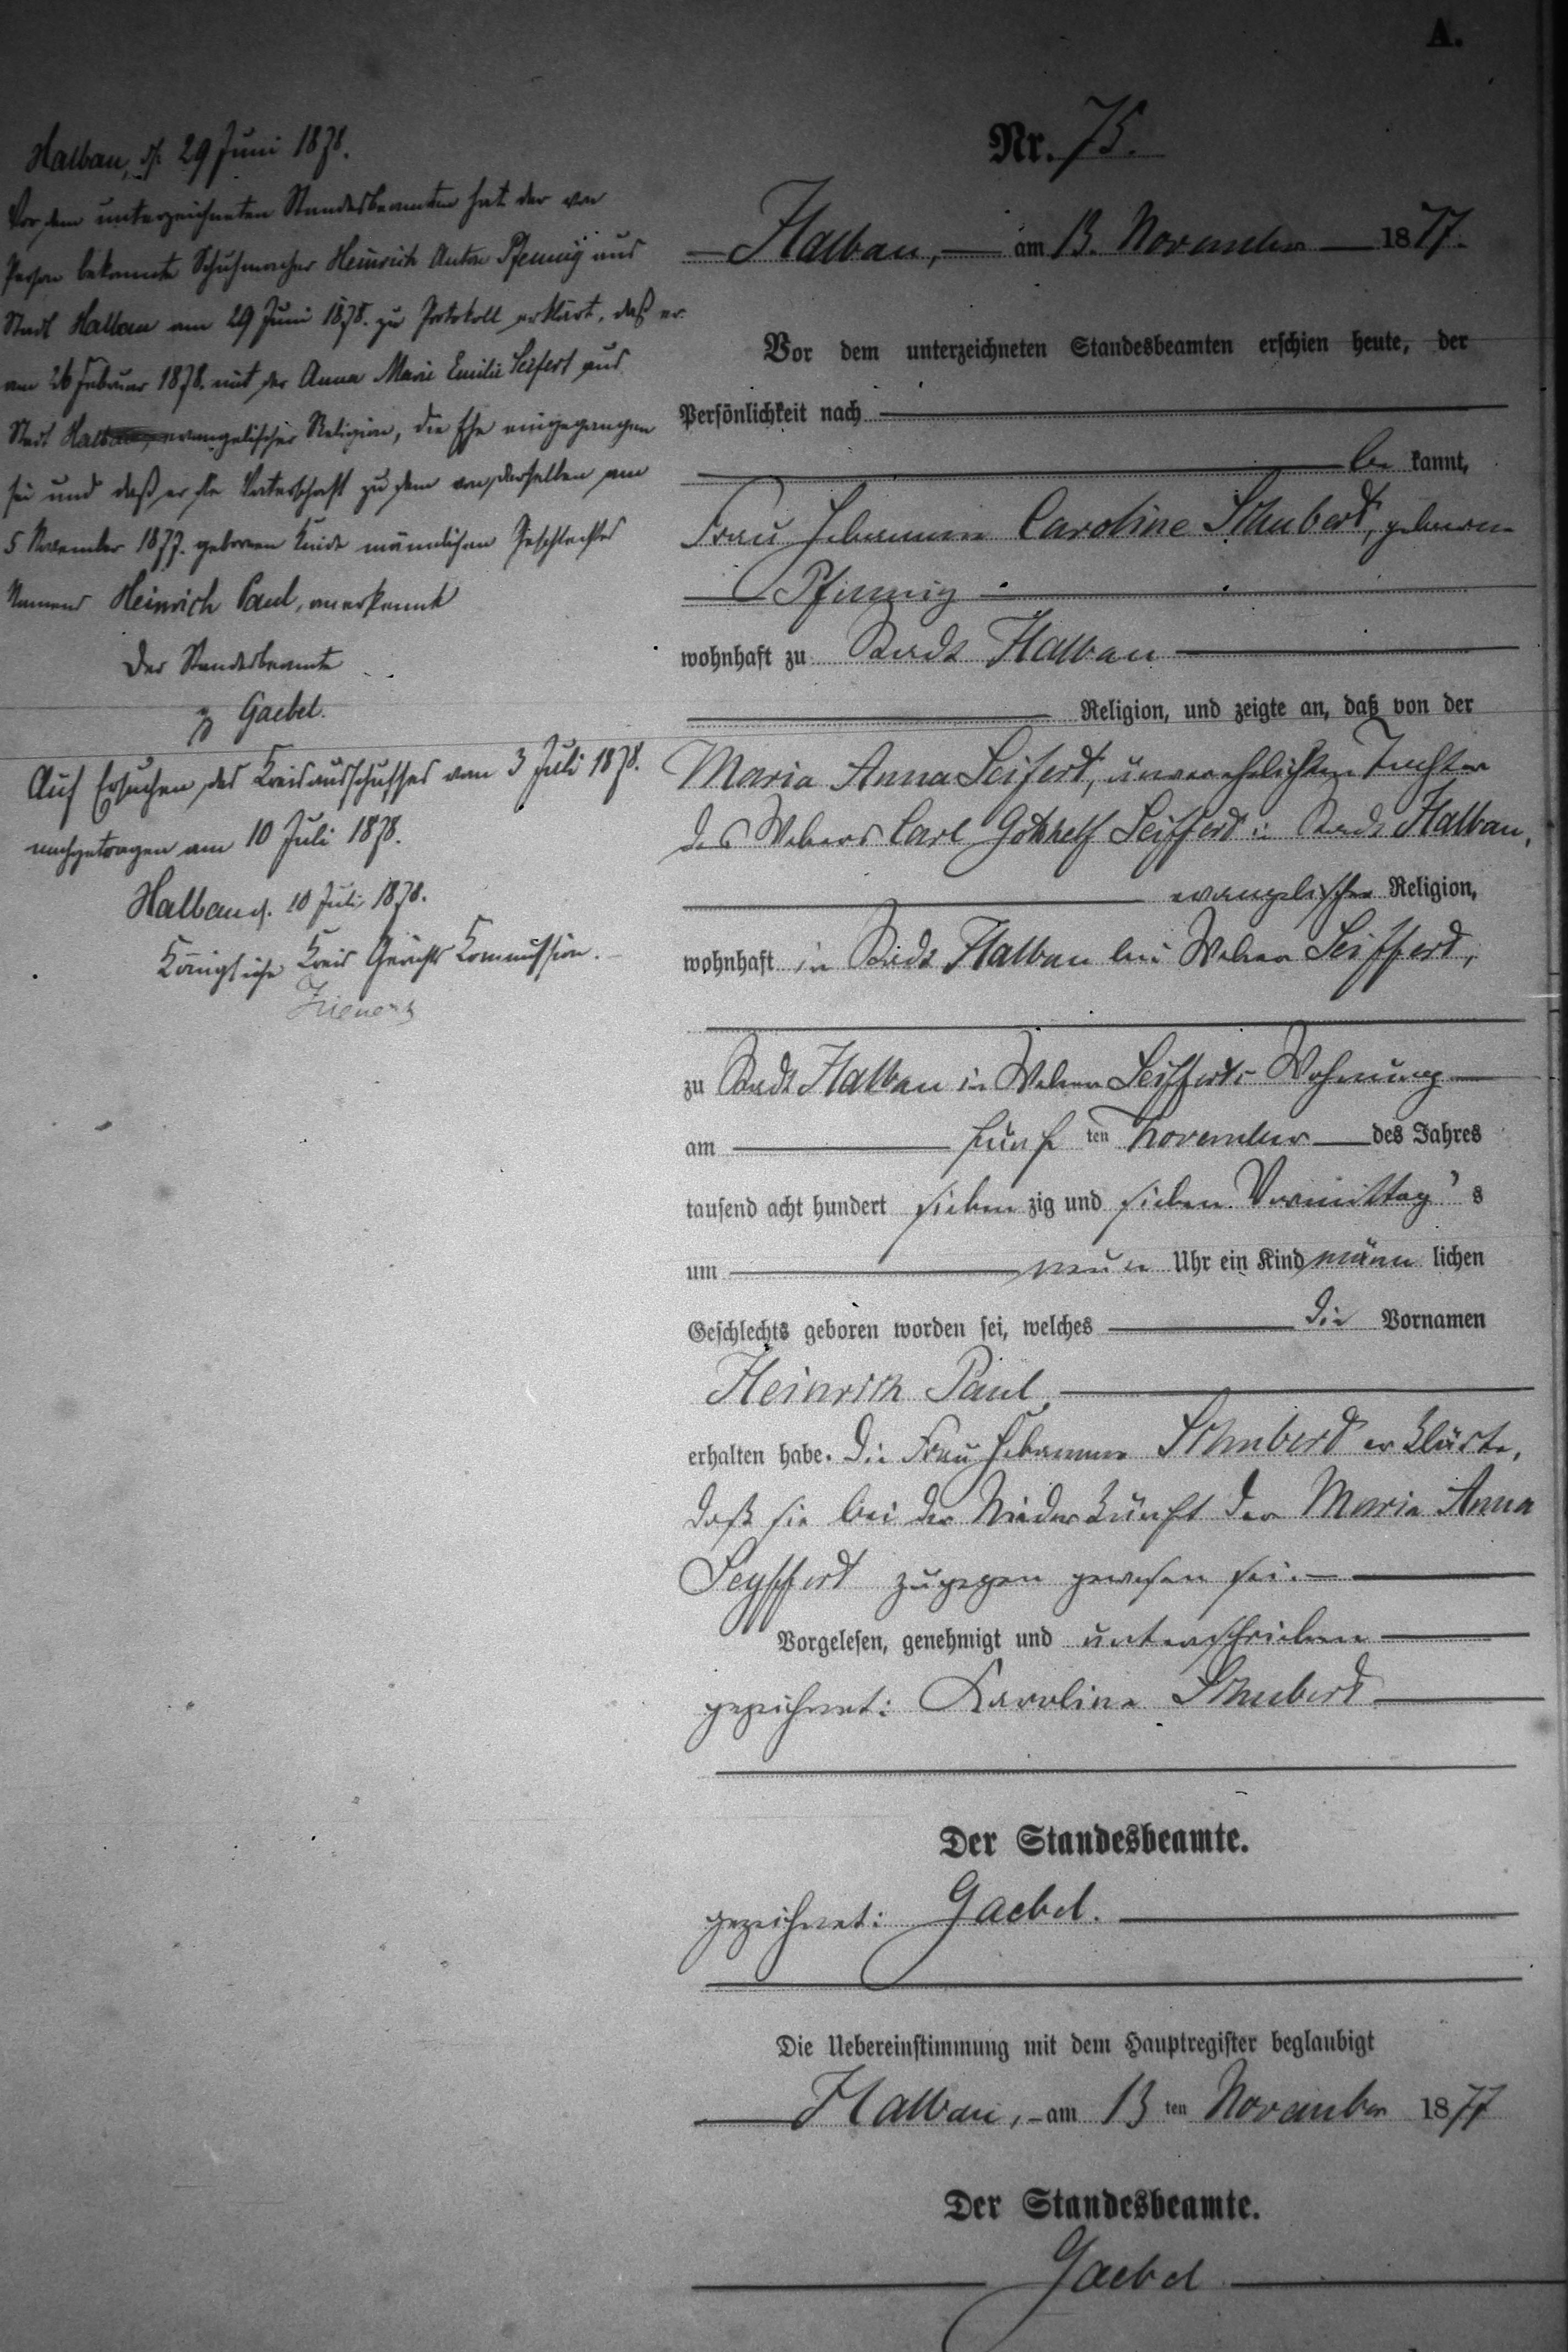 A.
Nr. 75.
Halbau, am 13. November 1877.
Vor dem unterzeichneten Standesbeamten erschien heute, der
Persönlichkeit nach
be kannt,
Frau Hebamme Caroline Schubert, geborene
Pfennig
wohnhaft zu Stadt Halbau
Religion, und zeigte an, daß von der
Maria Anna Seifert, unverehelichten Tochter
des Webers Carl Gotthelf Seiffert in Stadt Halbau,
evangelischer Religion,
wohnhaft in Stadt Halbau bei Weber Seiffert,
zu Stadt Halbau in Weber Seifferts Wohnung
am fünf ten November des Jahres
tausend acht hundert sieben zig und sieben Vormittag's
um neun Uhr ein Kind männ lichen
Geschlechts geboren worden sei, welches die Vornamen
Heinrich Paul
erhalten habe. Die Frau Hebamme Schubert erklärte,
daß sie bei der Niederkunft der Maria Anna
Seyffert zugegen gewesen sei.
Vorgelesen, genehmigt und unterschrieben
gezeichnet: Karoline Schubert
Der Standesbeamte.
gezeichnet: Gaebel.
Die Uebereinstimmung mit dem Hauptregister beglaubigt
Halbau, am 13 ten November 1877
Der Standesbeamte.
Gaebel
Halbau, d. 29 Juni 1878.
Vor dem unterzeichneten Standesbeamten hat der von
Person bekannte Schuhmacher Heinrich Anton Pfennig aus
Stadt Halbau am 29 Juni 1878. zu Protokoll erklärt, daß er
am 26 Februar 1878. mit der Anna Marie Emilie Seifert aus
Stadt Halbau, evangelischer Religion, die Ehe eingegangen
sei und daß er die Vaterschaft zu dem von derselben am
5 November 1877. geborenen Kinde männlichen Geschlechtes
Namens Heinrich Paul, anerkennt
Der Standesbeamte
gz Gaebel.
Auf Ersuchen des Kreisausschusses vom 3 Juli 1878.
nachgetragen am 10 Juli 1878.
Halbau d. 10 Juli 1878.
Königliche Kreis Gerichts Kommission.